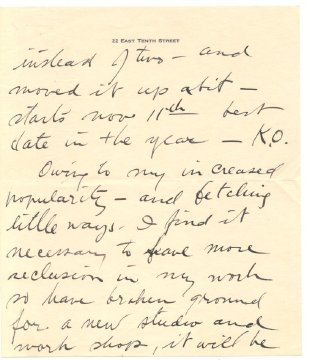 22 EAST TENTH STREET
instead of two - and
moved it up a bit -
starts nov 11th best
date in the year - K.O.
Owing to my increased
popularity - and fetching
little ways - I find it
necessary to have more
seclusion in my work
so have broken ground
for a new studio and
work shop, it will be